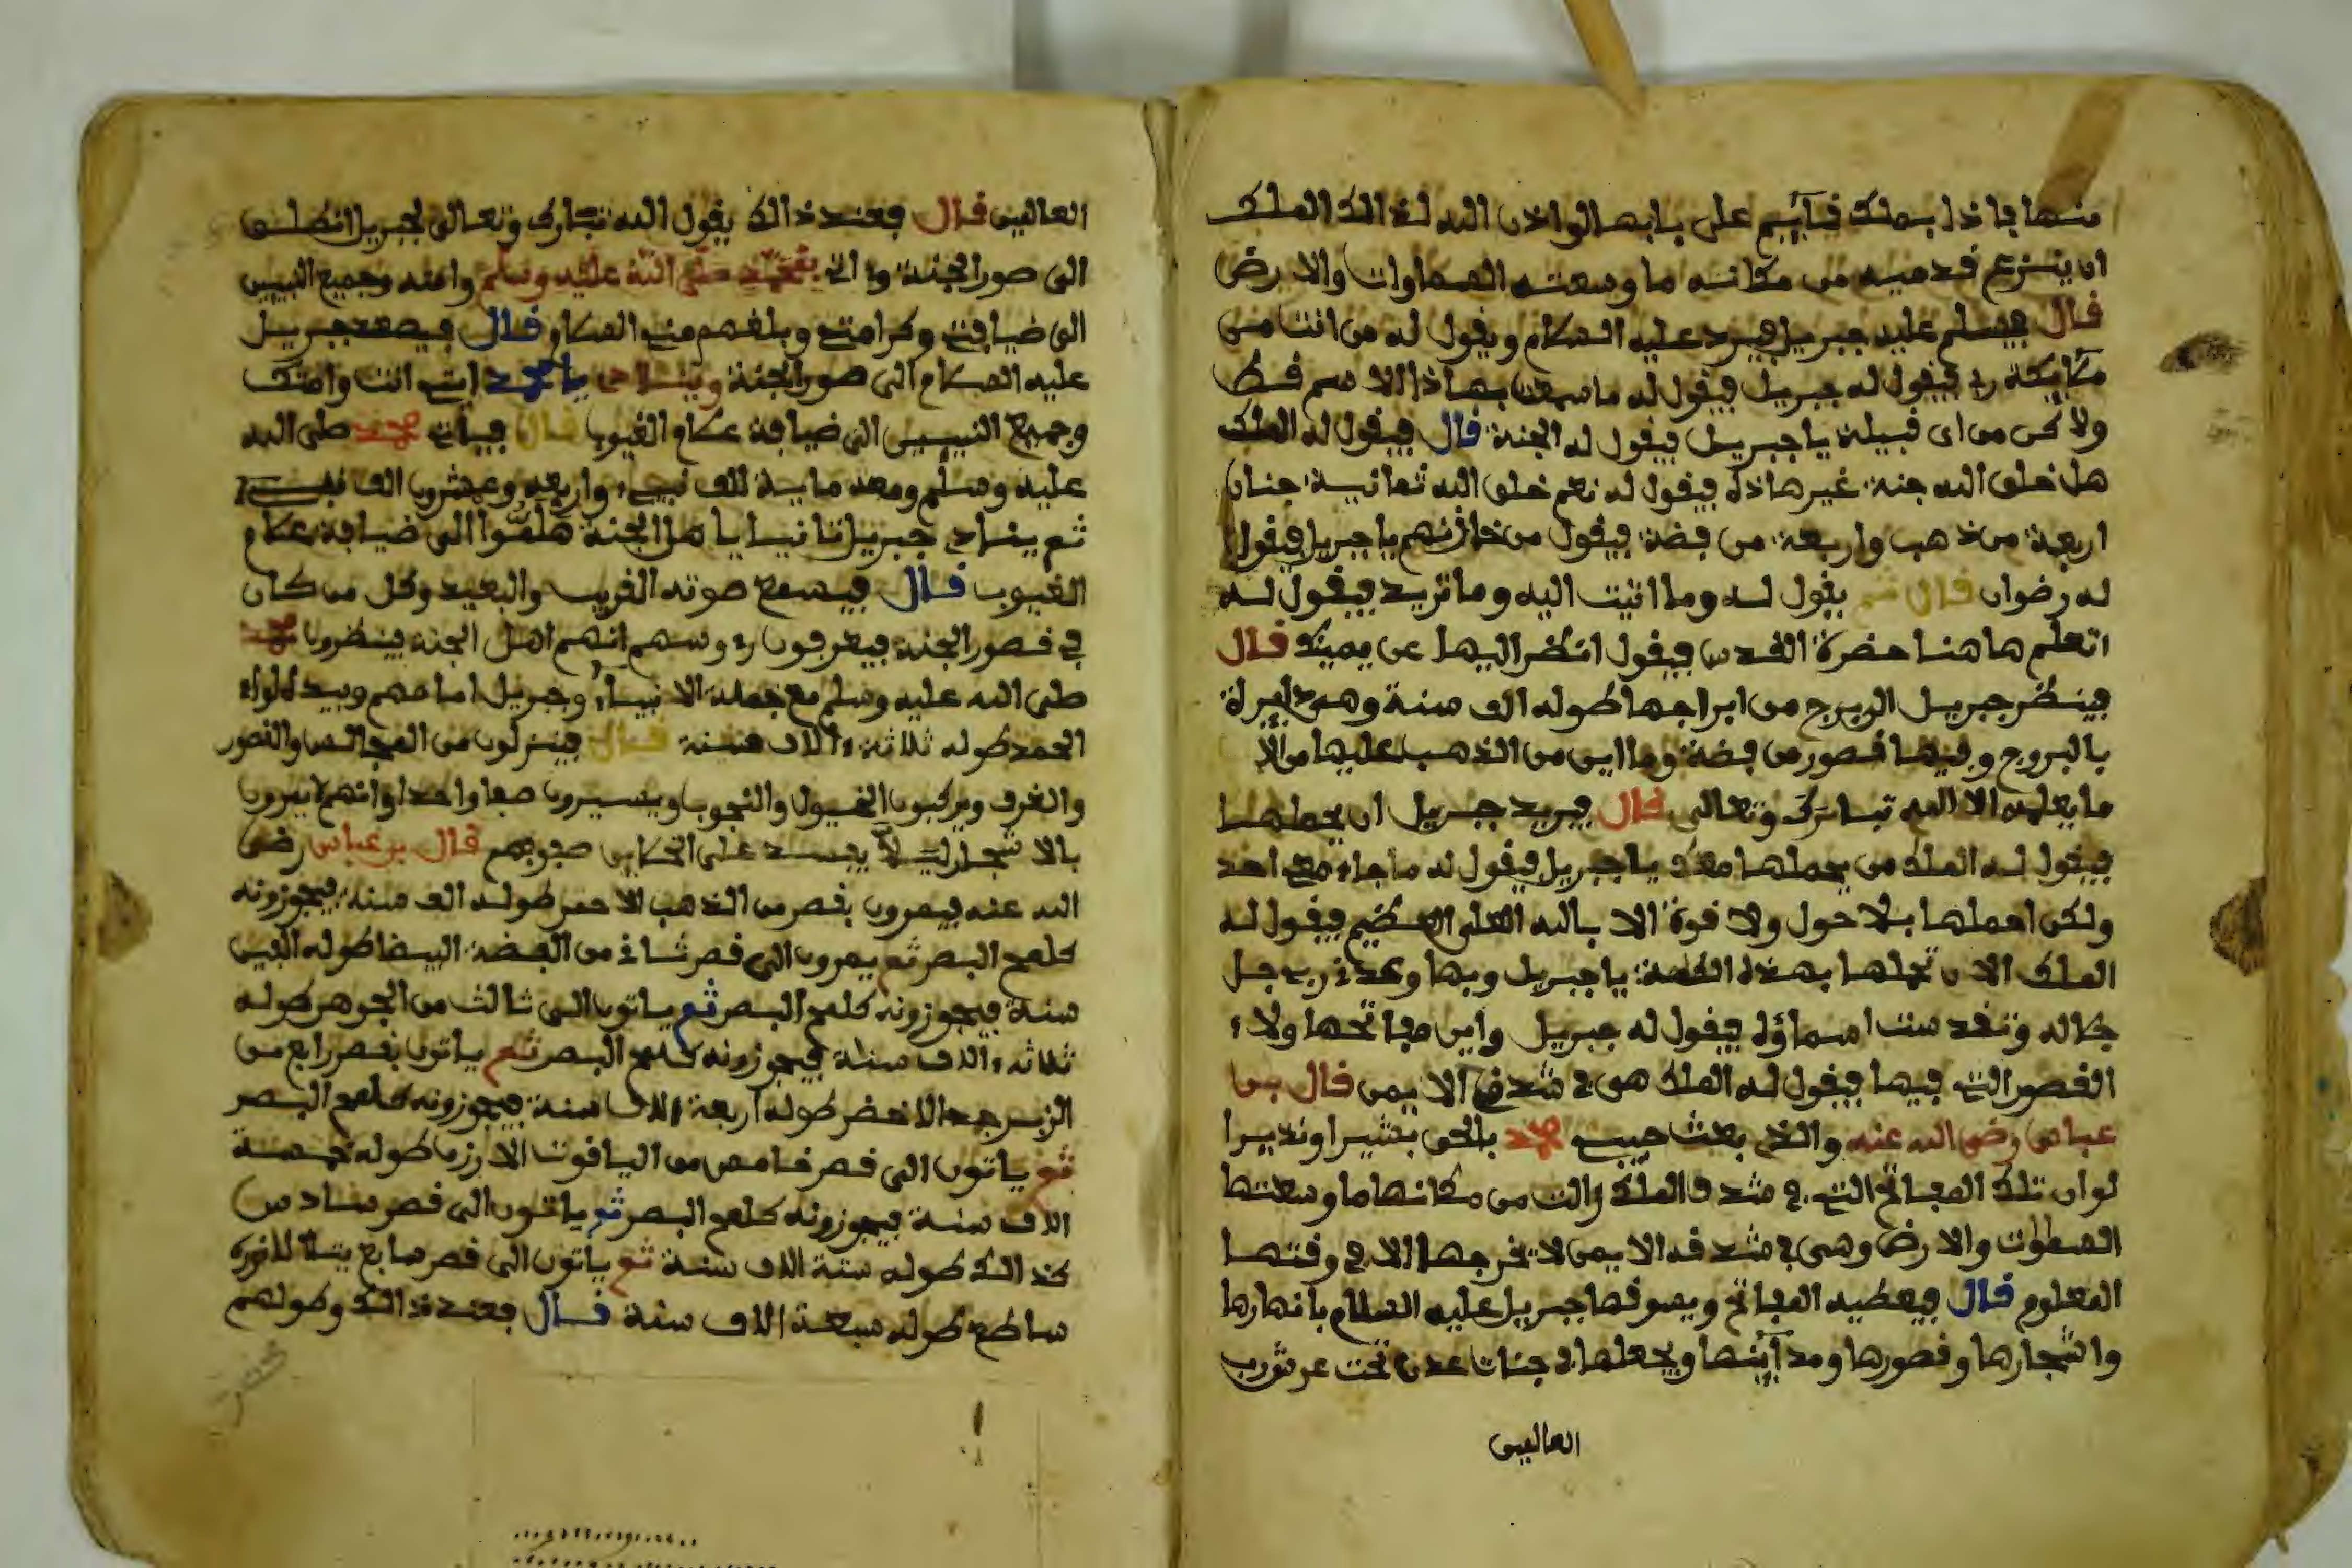 منها فاذا بملك قآيم على بابها لواذن الله لذالك الملك
ان ينزع قدميه من مكانه ما وسعته السماوات والارض
قال فيسلم عليه جبريل فيرد عليه السلام ويقول له من انت من
ملآيكة ربي فيقول له جبريل فيقول له ما سمعت بهاذا الاسم قط
ولاكن من اى قبيلة يا جبريل فيقول له الجنة قال فيقول له الملك
هل خلق الله جنة غير هاذه فيقول له نعم خلق الله ثمانية جنان
اربعة من ذهب واربعة من فضة فيقول من خازنهم يا جبريل فيقول
له رضوان قال ثم يقول له وما اتيت اليه وما تريد فيقول له
اتعلم هاهنا حضرة القدس فيقول انظر اليها عن يمينك قال
فينظر جبريل الى برج من ابراجها طوله الف سنة وهى دايرة
بالبروج وفيها قصور من فضة وماآين من الذهب عليها من الا
ما يعلمه الا الله تبارك وتعالى قال فيريد جبريل ان يحملها
فيقول له الملك من يحملها معك يا جبريل فيقول له ما جاء معى احد
ولكن احملها بلا حول ولا قوة الا بالله العلى العظيم فيقول له
الملك الان تحملها بهذه الكلمة يا جبريل وبها وعدني ربي جل
جلاله وتقدست اسماؤه فيقول له جبريل واين مفاتحها ولاء
القصور التي فيها فيقول له الملك هى في شدقى الايمن قال بن
عباس رضى الله عنه والذى بعث حبيبه محمد بالحق بشيرا ونذيرا
لوان تلك المفاتح التي في شدق الملك زالت من مكانها ما وسعتها
السماوات والارض وهى في شدقه الايمن لا تخرجها الا في وقتها
المعلوم قال فيعطيه المفاتح ويسوقها جبريل عليه السلام بانهارها
واشجارها وقصورها ومدآينها ويجعلها في جنات عدن تحت عرش رب
العالمين
العالمين قال فعند ذالك يقول الله تبارك وتعالى لجبريل انطلق
الى صور الجنة وءاتى بمحمد صلى الله عليه وسلم وامته وجميع النبيين
الى ضيافتي وكرامتي وبلغهم مني السلام قال فيصعد جبريل
عليه السلام الى صور الجنة وينادى يا محمد ايت انت وامتك
وجميع النبيين الى ضيافة علام الغيوب قال فياتي محمد صلى الله
عليه وسلم ومعه ماية الف نبيء واربعة وعشرون الف نبيء
ثم ينادى جبريل ثانيا يا اهل الجنة هلموا الى ضيافة علام
الغيوب قال فيسمع صوته القريب والبعيد وكل من كان
في قصور الجنة فيعرفون رءوسهم انهم اهل الجنة فينظرون محمد
صلى الله عليه وسلم مع جملة الانبياء وجبريل امامهم وبيده لواء
الحمد طوله ثلاثة ءالاف سنة قال فينزلون من المجالس والقصور
والغرف ويركبون الخيول والنجوب ويسيرون صفا واحدا وانهم لا يمرون
بالاشجار ليلا يفسد على الحاين صفوفهم قال بن عباس رضى
الله عنه فيمرون بقصر من الذهب الاحمر طوله الف سنة فيجوزونه
كلمح البصر ثم يمرون الى قصر ثاني من الفضة البيضا طوله الفين
سنة فيجوزونه كلمح البصر ثم ياتون الى ثالث من الجوهر طوله
ثلاثة ءالاف سنة فيجوزونه كلمح البصر ثم ياتون بقصر رابع من
الزبرجد الاخضر طوله اربعة الاف سنة فيجوزونه كلمح البصر
ثم ياتون الى قصر خامس من الياقوت الازرق طوله خمسة
الاف سنة فيجوزونه كلمح البصر ثم ياتون الى قصر سادس
كذالك طوله ستة الاف سنة ثم ياتون الى قصر سابع يتلالا نوره
ساطع طوله سبعة الاف سنة قال فعند ذالك وطولهم